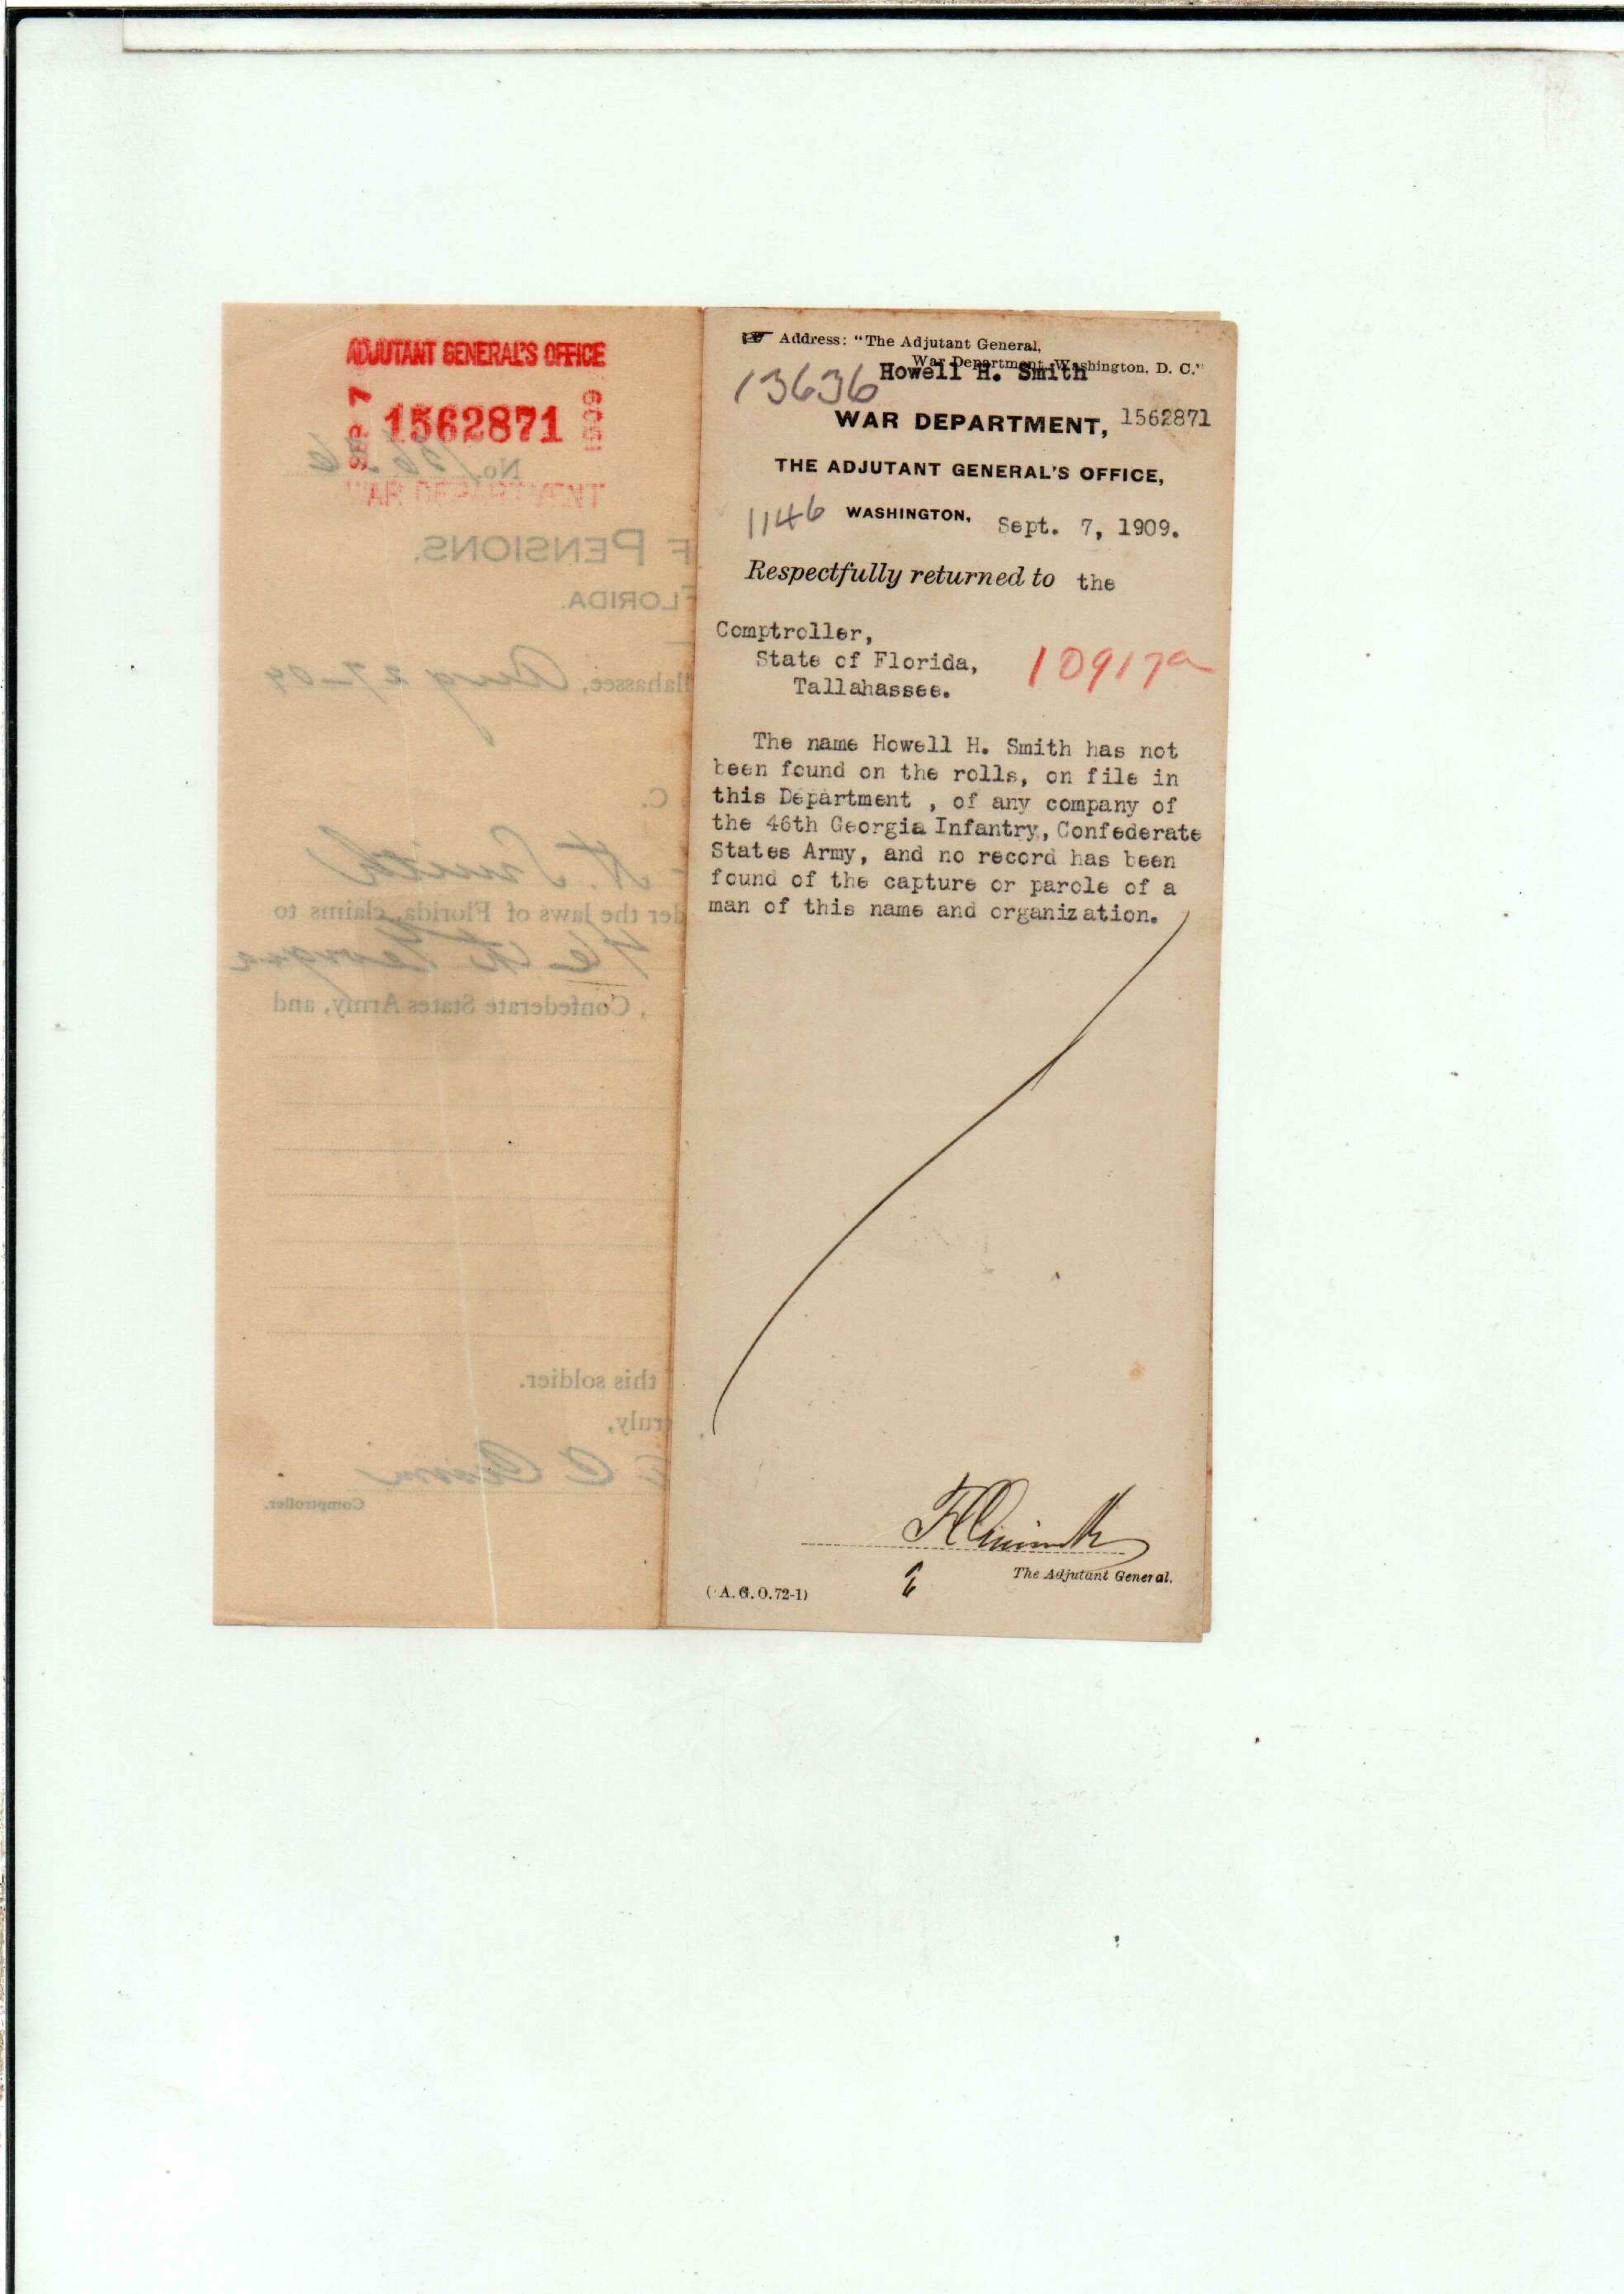 ADJUTANT GENERAL'S OFFICE
SEP 7 1562871 1909
WAR DEPARTMENT
No. 13636
F PENSIONS.
FLORIDA.
llahassee, Aug 27-09
C.
H. Smith
der the laws of Florida, claims to
46th Georgia
, Confederate States Army, and
this soldier.
truly,
Comptroller.
Address: "The Adjutant General,
War Department, Washington, D. C."
13636 Howell H. Smith
WAR DEPARTMENT, 1562871
THE ADJUTANT GENERAL'S OFFICE,
1146 WASHINGTON, Sept. 7, 1909.
Respectfully returned to the
Comptroller,
State of Florida, 10917a
Tallahassee.
The name Howell H. Smith has not
been found on the rolls, on file in
this Department , of any company of
the 46th Georgia Infantry, Confederate
States Army, and no record has been
found of the capture or parole of a
man of this name and organization.
The Adjutant General.
(A. G. O. 72-1)